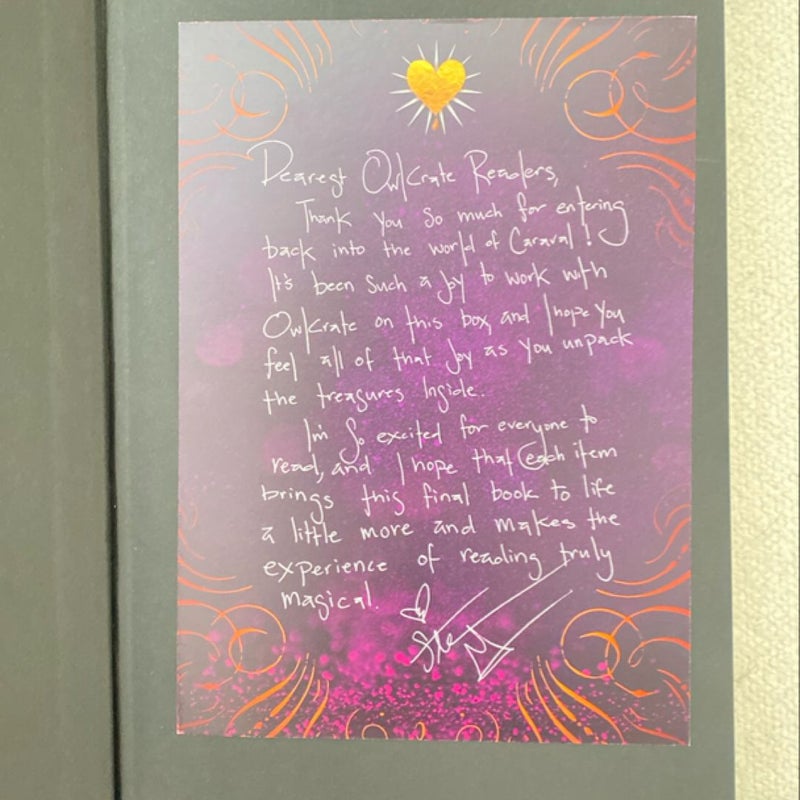 Dearest OwlCrate Readers,
Thank you so much for entering
back into the world of Caraval!
It's been such a joy to work with
OwlCrate on this box, and I hope you
feel all of that joy as you unpack
the treasures inside.
I'm so excited for everyone to
read, and I hope that each item
brings this final book to life
a little more and makes the
experience of reading truly
magical.